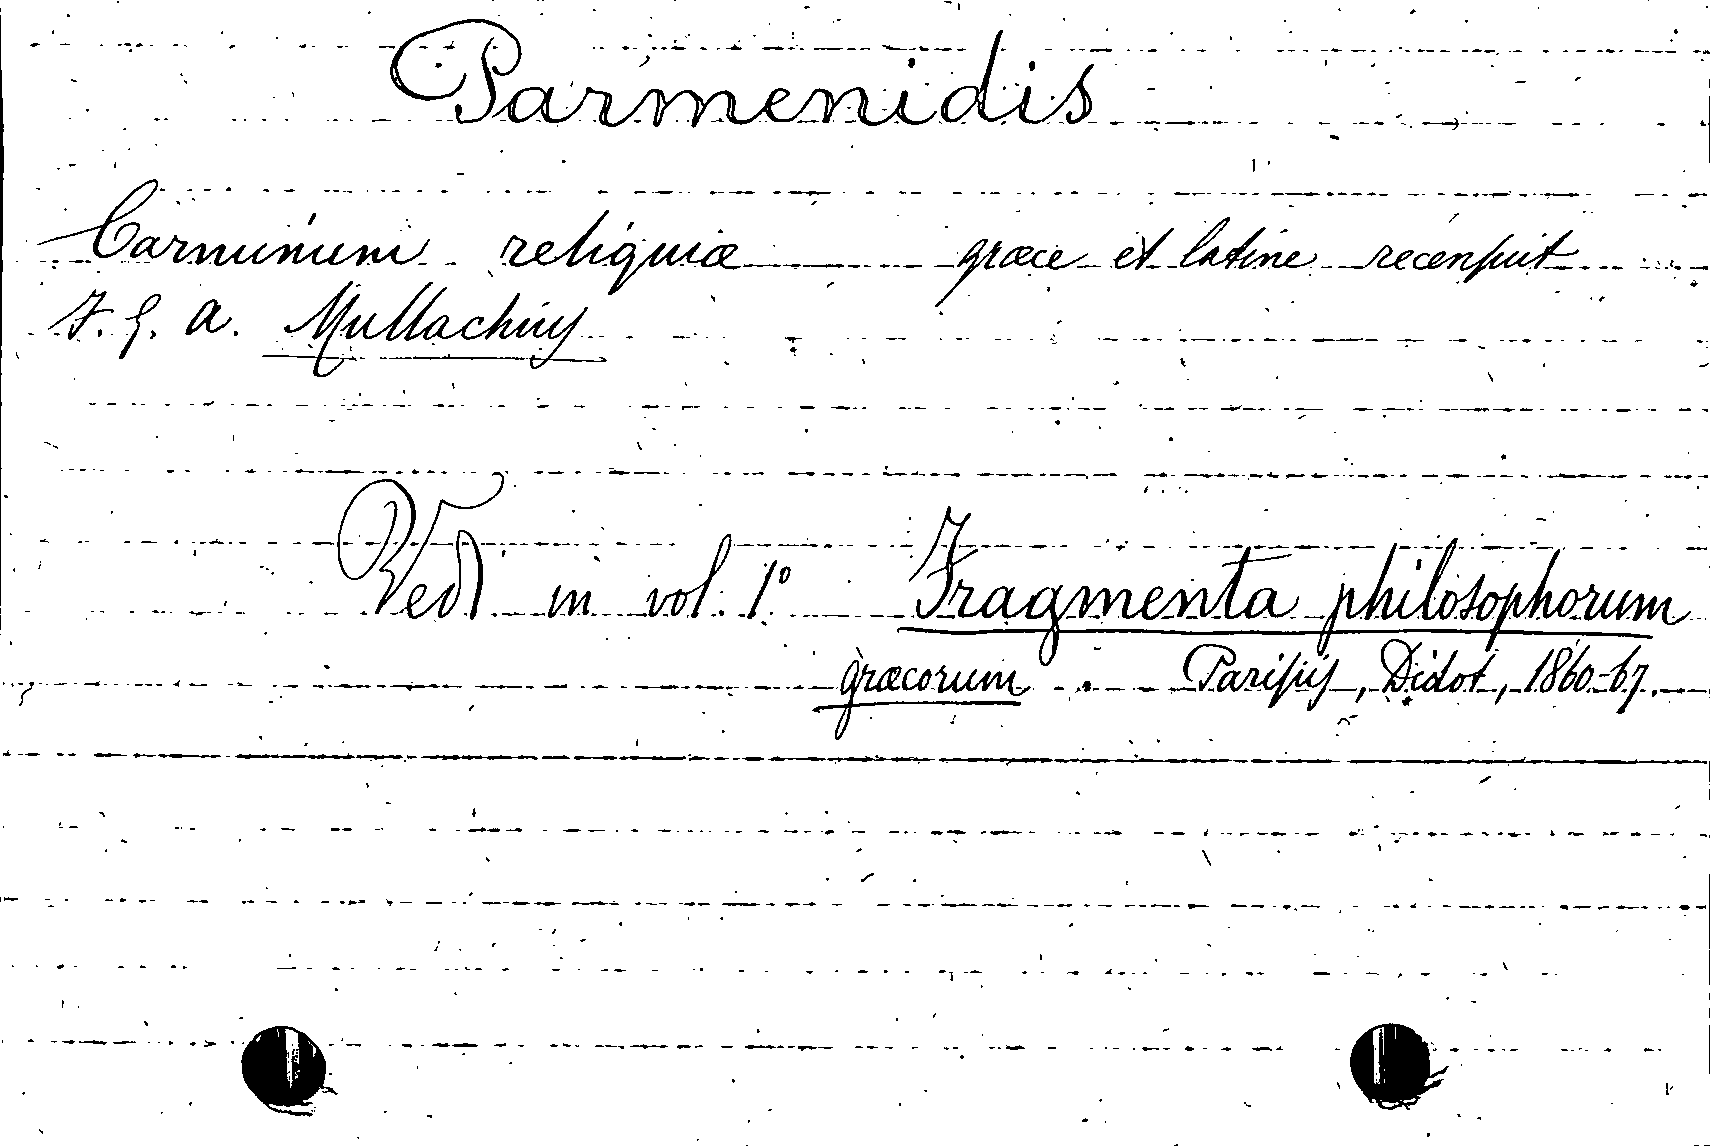 Parmenidis
Carminum reliquiæ græce et latine recensuit
F. G. A. Mullachius
Vedi in vol. 1º Fragmenta philosophorum
græcorum. Parisiis, Didot, 1860-67.